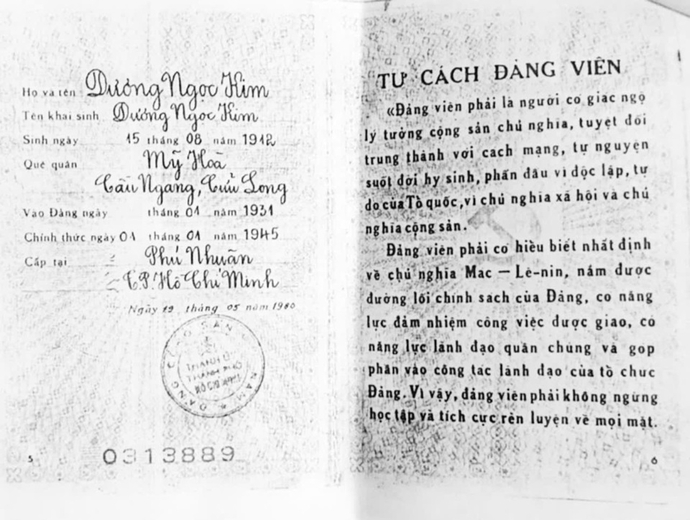 Họ và tên : Dương Ngọc Kim
Tên khai sinh Dương Ngọc Kim
Sinh ngày 15 tháng 08 năm 1912
Quê quán Mỹ Hoà
Cầu Ngang, Cửu Long
Vào Đảng ngày tháng 01 năm 1931
Chính thức ngày 01 tháng 01 năm 1945
Cấp tại Phú Nhuận
T.P. Hồ Chí Minh
Ngày 19 tháng 05 năm 1980
ĐẢNG CỘNG SẢN VIỆT NAM
THÀNH ỦY
THÀNH PHỐ
HỒ CHÍ MINH
5 0313889
TƯ CÁCH ĐẢNG VIÊN
«Đảng viên phải là người có giác ngộ
lý tưởng cộng sản chủ nghĩa, tuyệt đối
trung thành với cách mạng, tự nguyện
suốt đời hy sinh, phấn đấu vì độc lập, tự
do của Tổ quốc, vì chủ nghĩa xã hội và chủ
nghĩa cộng sản.
Đảng viên phải có hiểu biết nhất định
về chủ nghĩa Mác — Lê-nin, nắm được
đường lối chính sách của Đảng, có năng
lực đảm nhiệm công việc được giao, có
năng lực lãnh đạo quần chúng và góp
phần vào công tác lãnh đạo của tổ chức
Đảng. Vì vậy, đảng viên phải không ngừng
học tập và tích cực rèn luyện về mọi mặt.
6